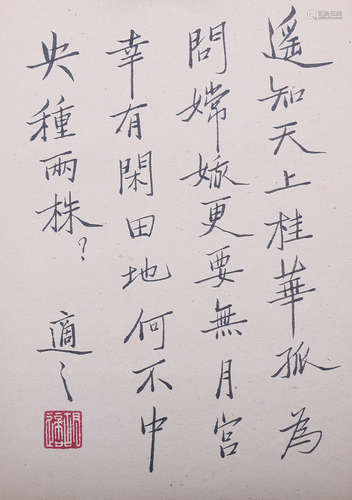 遥知天上桂華孤為
問嫦娥更要無月宮
幸有閑田地何不中
央種兩株？
適之